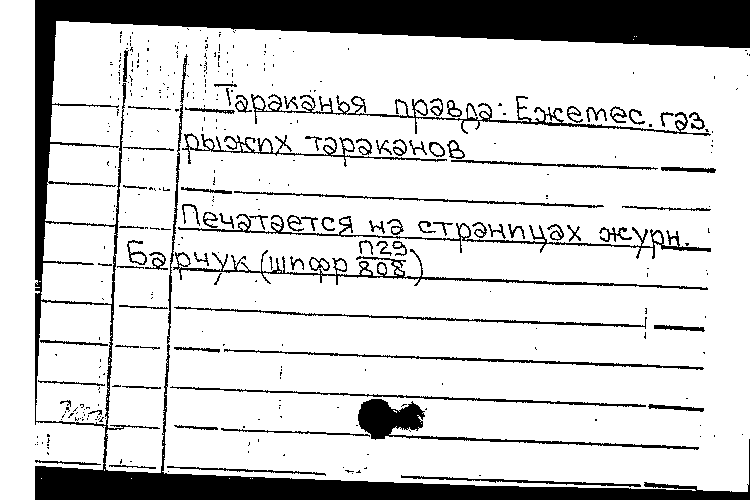 Тараканья правда: Ежемес. газ.
рыжих тараканов
Печатается на страницах журн.
Барчук (шифр П29
808)